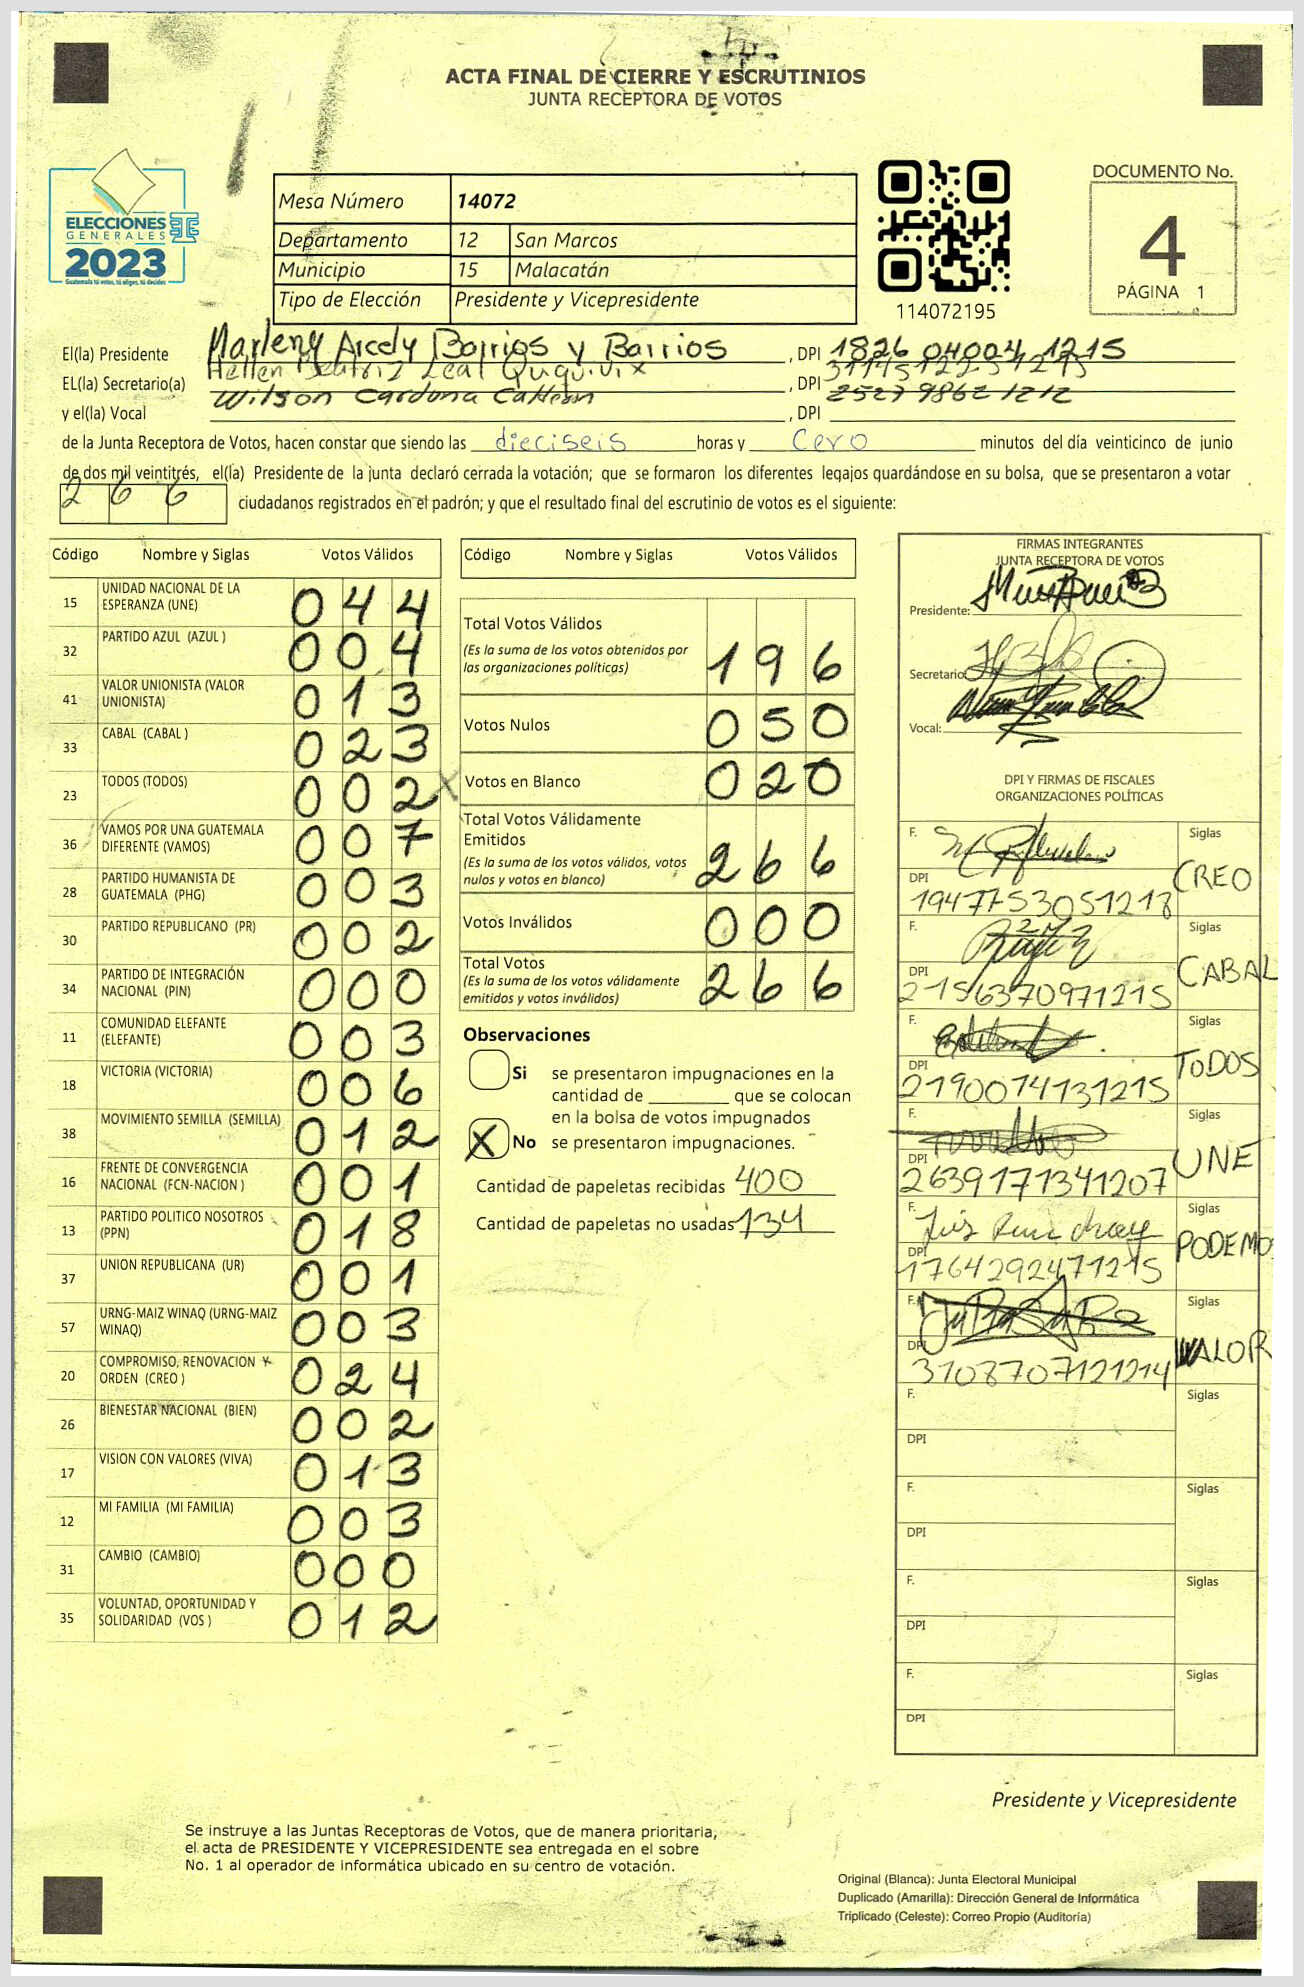 ACTA FINAL DE CIERRE Y ESCRUTINIOS
JUNTA RECEPTORA DE VOTOS
ELECCIONES
GENERALES
2023
Guatemala tú votas, tú eliges, tú decides
Mesa Número 14072
Departamento 12 San Marcos
Municipio 15 Malacatán
Tipo de Elección Presidente y Vicepresidente
114072195
DOCUMENTO No.
4
PÁGINA 1
El(la) Presidente Marleny Arcely Barrios y Barrios , DPI 1826 04004 1215
EL(la) Secretario(a) Hellen Beatriz Leal Ququivix , DPI
y el(la) Vocal Wilson Cardona Calderon , DPI 2527 9862 1212
de la Junta Receptora de Votos, hacen constar que siendo las dieciseis horas y Cero minutos del día veinticinco de junio
de dos mil veintitrés, el(la) Presidente de la junta declaró cerrada la votación; que se formaron los diferentes legajos guardándose en su bolsa, que se presentaron a votar
266 ciudadanos registrados en el padrón; y que el resultado final del escrutinio de votos es el siguiente:
Código Nombre y Siglas Votos Válidos
15 UNIDAD NACIONAL DE LA ESPERANZA (UNE) 044
32 PARTIDO AZUL (AZUL ) 004
41 VALOR UNIONISTA (VALOR UNIONISTA) 013
33 CABAL (CABAL ) 023
23 TODOS (TODOS) 002 X
36 VAMOS POR UNA GUATEMALA DIFERENTE (VAMOS) 007
28 PARTIDO HUMANISTA DE GUATEMALA (PHG) 003
30 PARTIDO REPUBLICANO (PR) 002
34 PARTIDO DE INTEGRACIÓN NACIONAL (PIN) 000
11 COMUNIDAD ELEFANTE (ELEFANTE) 003
18 VICTORIA (VICTORIA) 006
38 MOVIMIENTO SEMILLA (SEMILLA) 012
16 FRENTE DE CONVERGENCIA NACIONAL (FCN-NACION ) 001
13 PARTIDO POLITICO NOSOTROS (PPN) 018
37 UNION REPUBLICANA (UR) 001
57 URNG-MAIZ WINAQ (URNG-MAIZ WINAQ) 003
20 COMPROMISO, RENOVACION Y ORDEN (CREO ) 024
26 BIENESTAR NACIONAL (BIEN) 002
17 VISION CON VALORES (VIVA) 013
12 MI FAMILIA (MI FAMILIA) 003
31 CAMBIO (CAMBIO) 000
35 VOLUNTAD, OPORTUNIDAD Y SOLIDARIDAD (VOS ) 012
Código Nombre y Siglas Votos Válidos
Total Votos Válidos
(Es la suma de los votos obtenidos por
las organizaciones políticas) 196
Votos Nulos 050
Votos en Blanco 020
Total Votos Válidamente
Emitidos
(Es la suma de los votos válidos, votos
nulos y votos en blanco) 266
Votos Inválidos 000
Total Votos
(Es la suma de los votos válidamente
emitidos y votos inválidos) 266
Observaciones
Si se presentaron impugnaciones en la
cantidad de ________ que se colocan
en la bolsa de votos impugnados
X No se presentaron impugnaciones.
Cantidad de papeletas recibidas 400
Cantidad de papeletas no usadas 134
FIRMAS INTEGRANTES
JUNTA RECEPTORA DE VOTOS
Presidente:
Secretario
Vocal:
DPI Y FIRMAS DE FISCALES
ORGANIZACIONES POLÍTICAS
F. Siglas
DPI 1947753051213 CREO
F. Siglas
DPI 2156370971215 CABAL
F. Siglas
DPI 2190014131215 TODOS
F. Siglas
DPI 2639171341207 UNE
F. Siglas
DPI 1764292471215 PODEMO
F. Siglas
DPI 3108707121214 VALOR
F. Siglas
DPI
F. Siglas
DPI
F. Siglas
DPI
F. Siglas
DPI
Presidente y Vicepresidente
Se instruye a las Juntas Receptoras de Votos, que de manera prioritaria,
el acta de PRESIDENTE Y VICEPRESIDENTE sea entregada en el sobre
No. 1 al operador de informática ubicado en su centro de votación.
Original (Blanca): Junta Electoral Municipal
Duplicado (Amarilla): Dirección General de Informática
Triplicado (Celeste): Correo Propio (Auditoría)